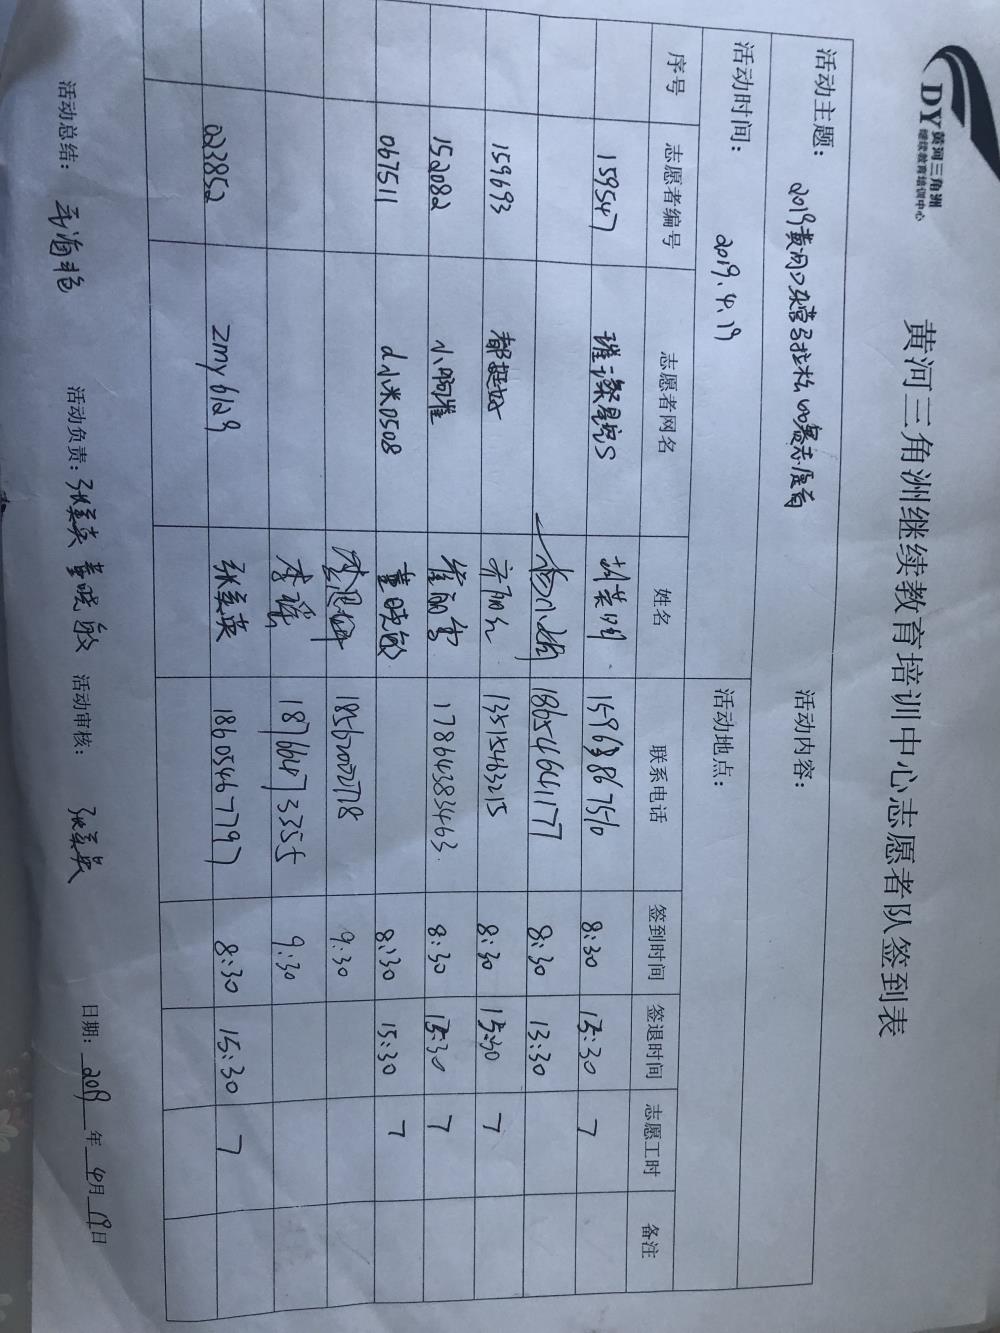 DY 黄河三角洲
继续教育培训中心
黄河三角洲继续教育培训中心志愿者队签到表
活动主题： 2019黄河口东营马拉松 志愿者 活动内容：
活动时间： 2019.4.19 活动地点：
序号 志愿者编号 志愿者网名 姓名 联系电话 签到时间 签退时间 志愿工时 备注
159547 璀璨星空S 8:30 15:30 7
18654641777 8:30 13:30
159693 都挺好 13515463215 8:30 15:30 7
152082 小啊崔 崔丽雪 17864383463 8:30 15:30 7
067511 d小米0508 董晓敏 8:30 15:30 7
18562002778 9:30
李瑶 18766473355 9:30
223852 zmy6129 张美英 18605467797 8:30 15:30 7
活动总结： 活动负责：张美英 董晓敏 活动审核： 张美英 日期： 2019 年 4 月 19 日